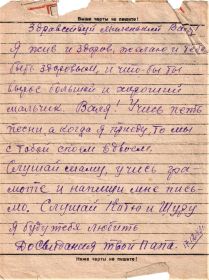 Выше черты не пишите!
Здравствуй миленький Валя!
Я жив и здоров, желаю и тебе
быть здоровым, и что-бы ты
вырос большой и хороший
мальчик. Валя! Учись петь
песни, а когда я приду, то мы
с тобой споем вдвоем.
Слушай маму, учись гра-
моте и напиши мне пись-
мо. Слушай Катю и Шуру
Я буду тебя любить
До свидания твой Папа.
Ниже черты не пишите!